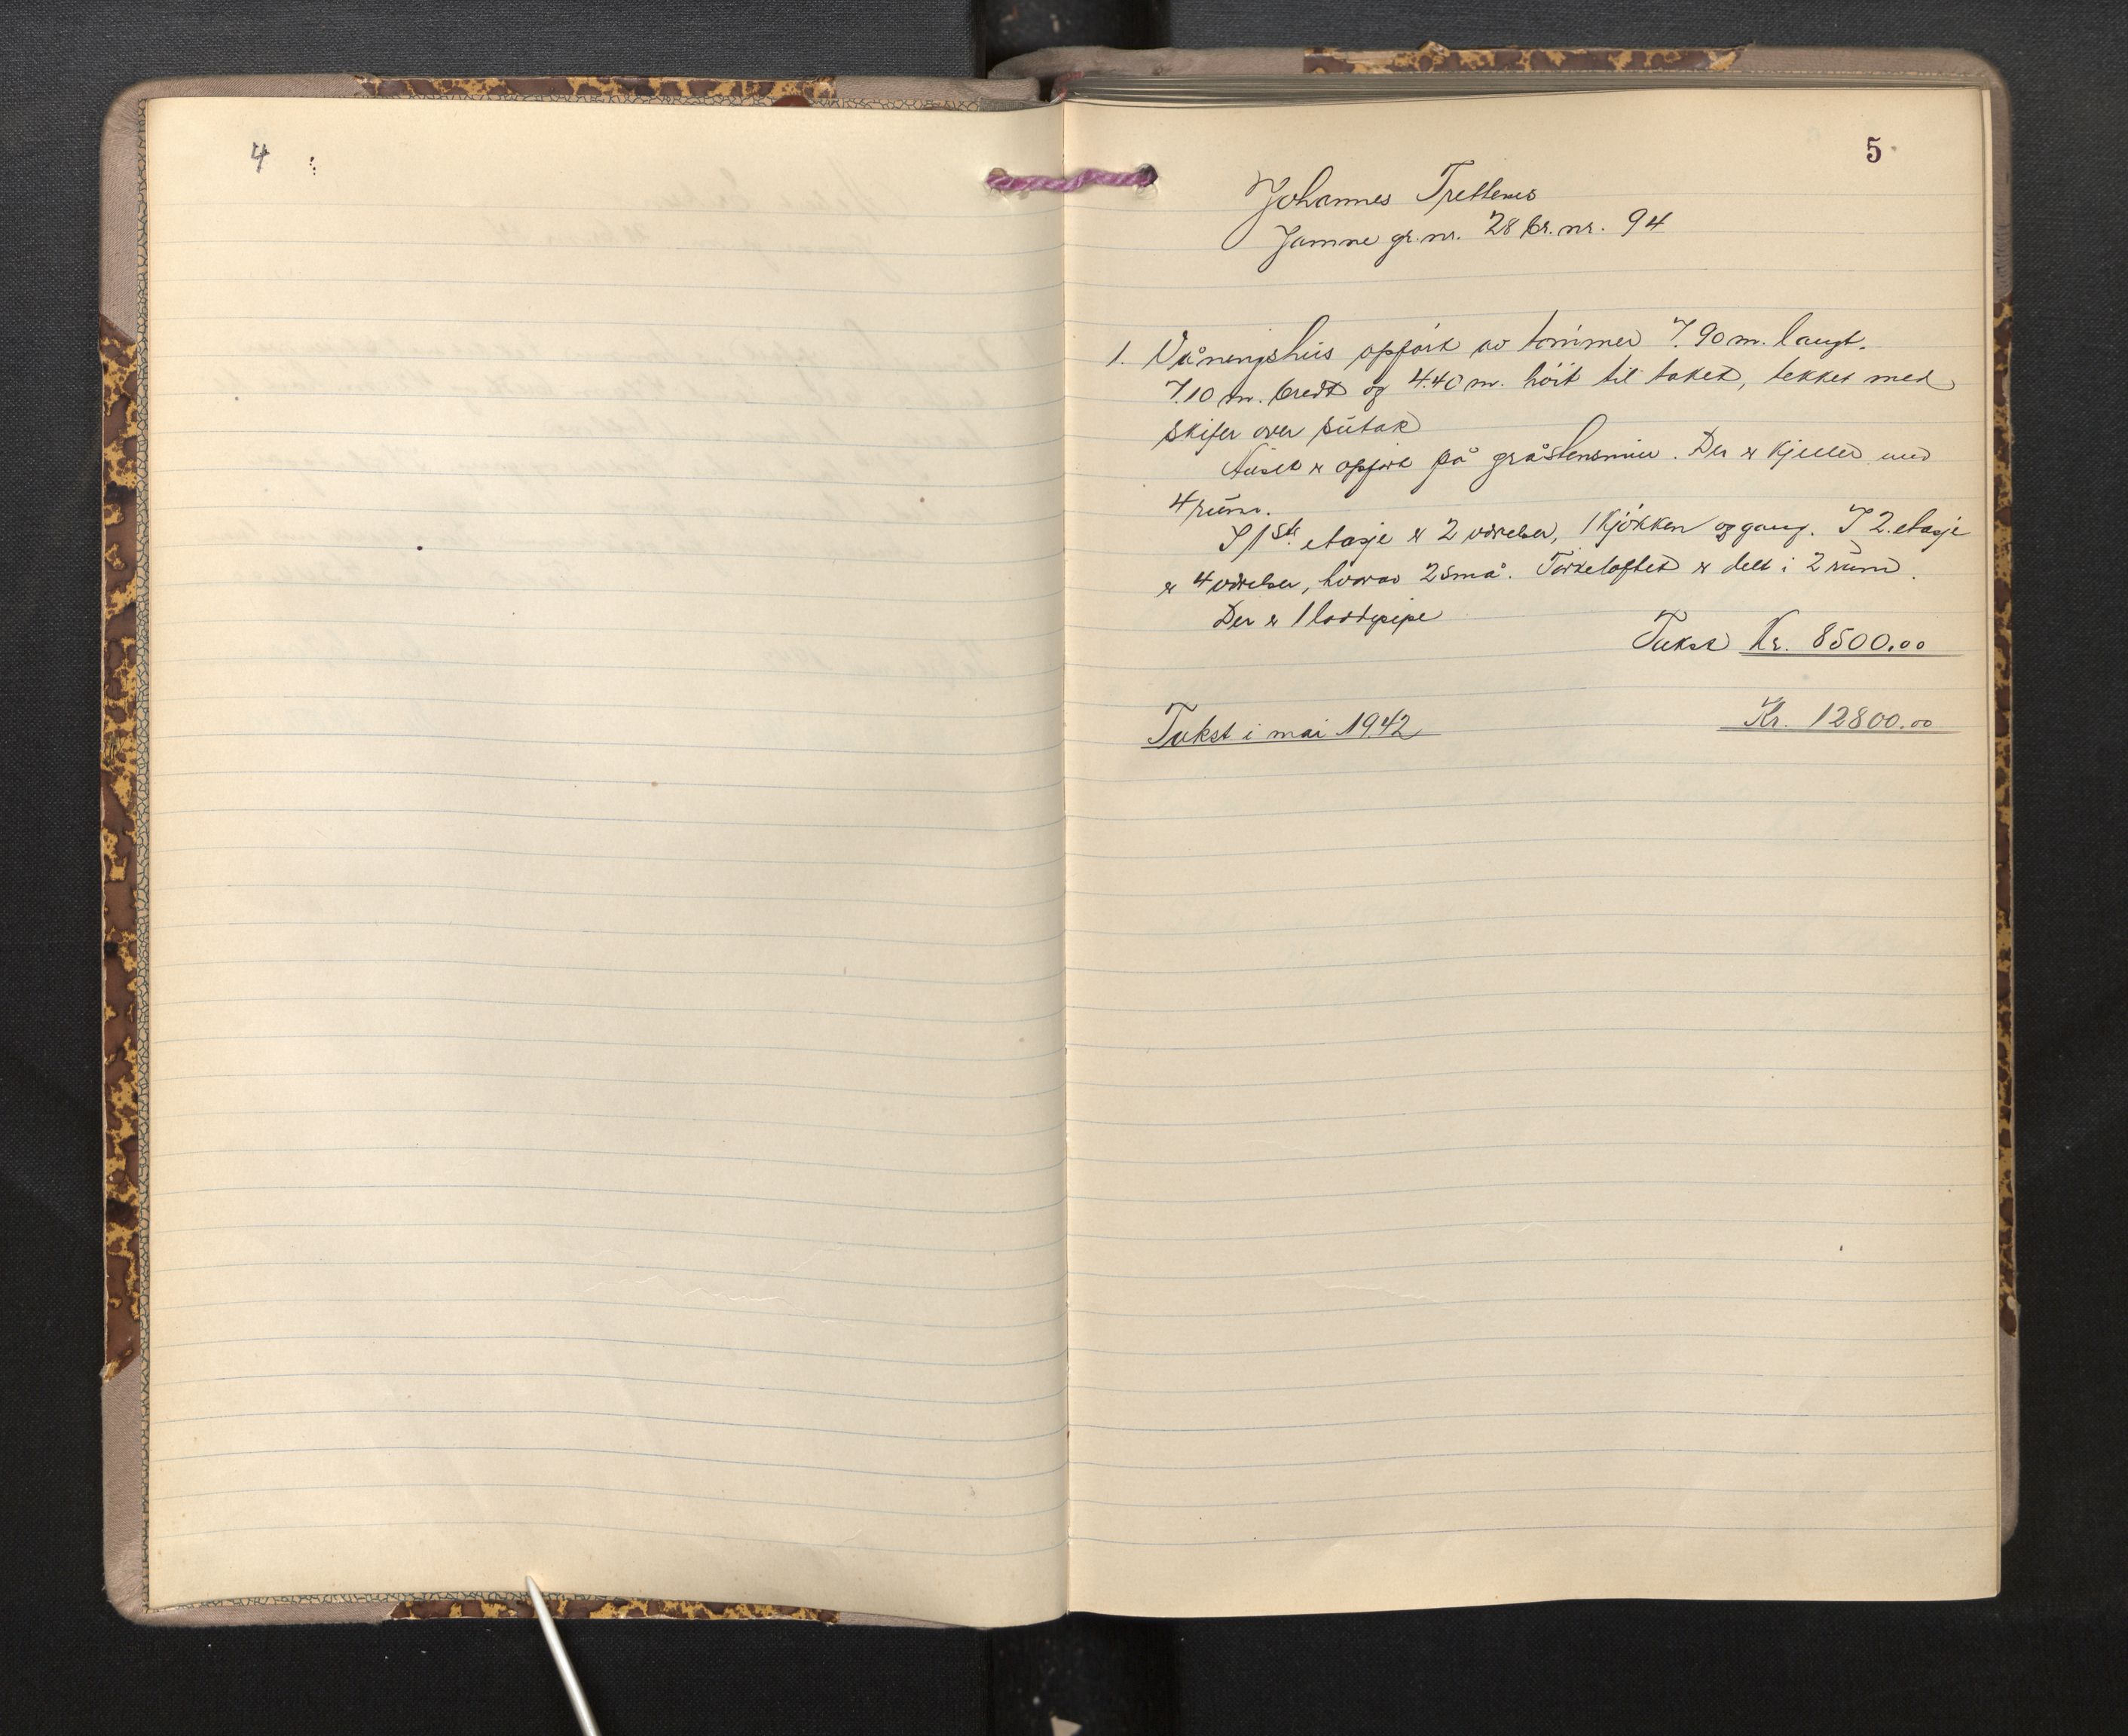 4
5
Johannes Trettenes
Jamne gr. nr. 28 br. nr. 94
1. Våningshus opført av tømmer 7.90 m. langt.
7.10 m. bredt og 4.40 m. høit til taket, tekket med
skifer over sutak
Huset er opført på gråstensmur. Der er kjeller med
4 rum.
I 1ste etasje er 2 værelser, 1 kjøkken og gang. I 2. etasje
er 4 værelser, hvorav 2 små. Tørkeloftet er delt i 2 rum.
Der er 1 loddpipe
Takst Kr. 8500.00
Takst i mai 1942 Kr. 12800.00